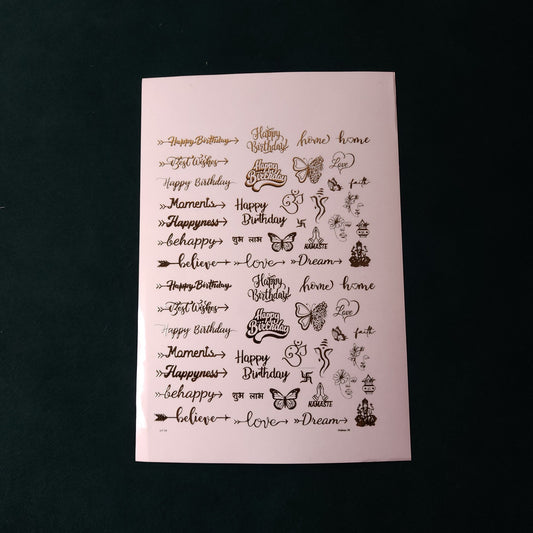 Happy Birthday Happy Birthday home home
Best Wishes Happy Birthday Love
Happy Birthday faith
Moments Happy Birthday ॐ
Happyness
behappy शुभ लाभ NAMASTE
believe love Dream
Happy Birthday Happy Birthday home home
Best Wishes Happy Birthday Love
Happy Birthday faith
Moments Happy Birthday ॐ
Happyness
behappy शुभ लाभ NAMASTE
believe love Dream